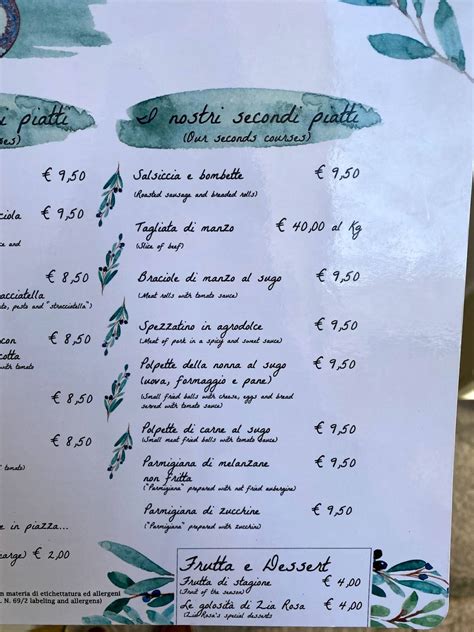 i piatti
ses)
€ 9,50
ciola € 9,50
ce and
€ 8,50
racciatella
to, pesto and "stracciatella")
con € 8,50
cotta
with tomato
€ 8,50
€ 8,50
tomato)
e in piazza...
carge) € 2,00
n materia di etichettatura ed allergeni
. N. 69/2 labeling and allergens)
I nostri secondi piatti
(Our seconds courses)
Salsiccia e bombette € 9,50
(Roasted sausage and breaded rolls)
Tagliata di manzo € 40,00 al Kg
(Slice of beef)
Braciole di manzo al sugo € 9,50
(Meat rolls with tomato sauce)
Spezzatino in agrodolce € 9,50
(Meat of pork in a spicy and sweet sauce)
Polpette della nonna al sugo € 9,50
(uova, formaggio e pane)
(Small fried balls with cheese, eggs and bread
served with tomato sauce)
Polpette di carne al sugo € 9,50
(Small meat fried balls with tomato sauce)
Parmigiana di melanzane € 9,50
non fritta
("Parmigiana" prepared with not fried aubergine)
Parmigiana di zucchine € 9,50
("Parmigiana" prepared with zucchine)
Frutta e Dessert
Frutta di stagione € 4,00
(Fruit of the season)
Le golosità di Zia Rosa € 4,00
(Zia Rosa's special desserts